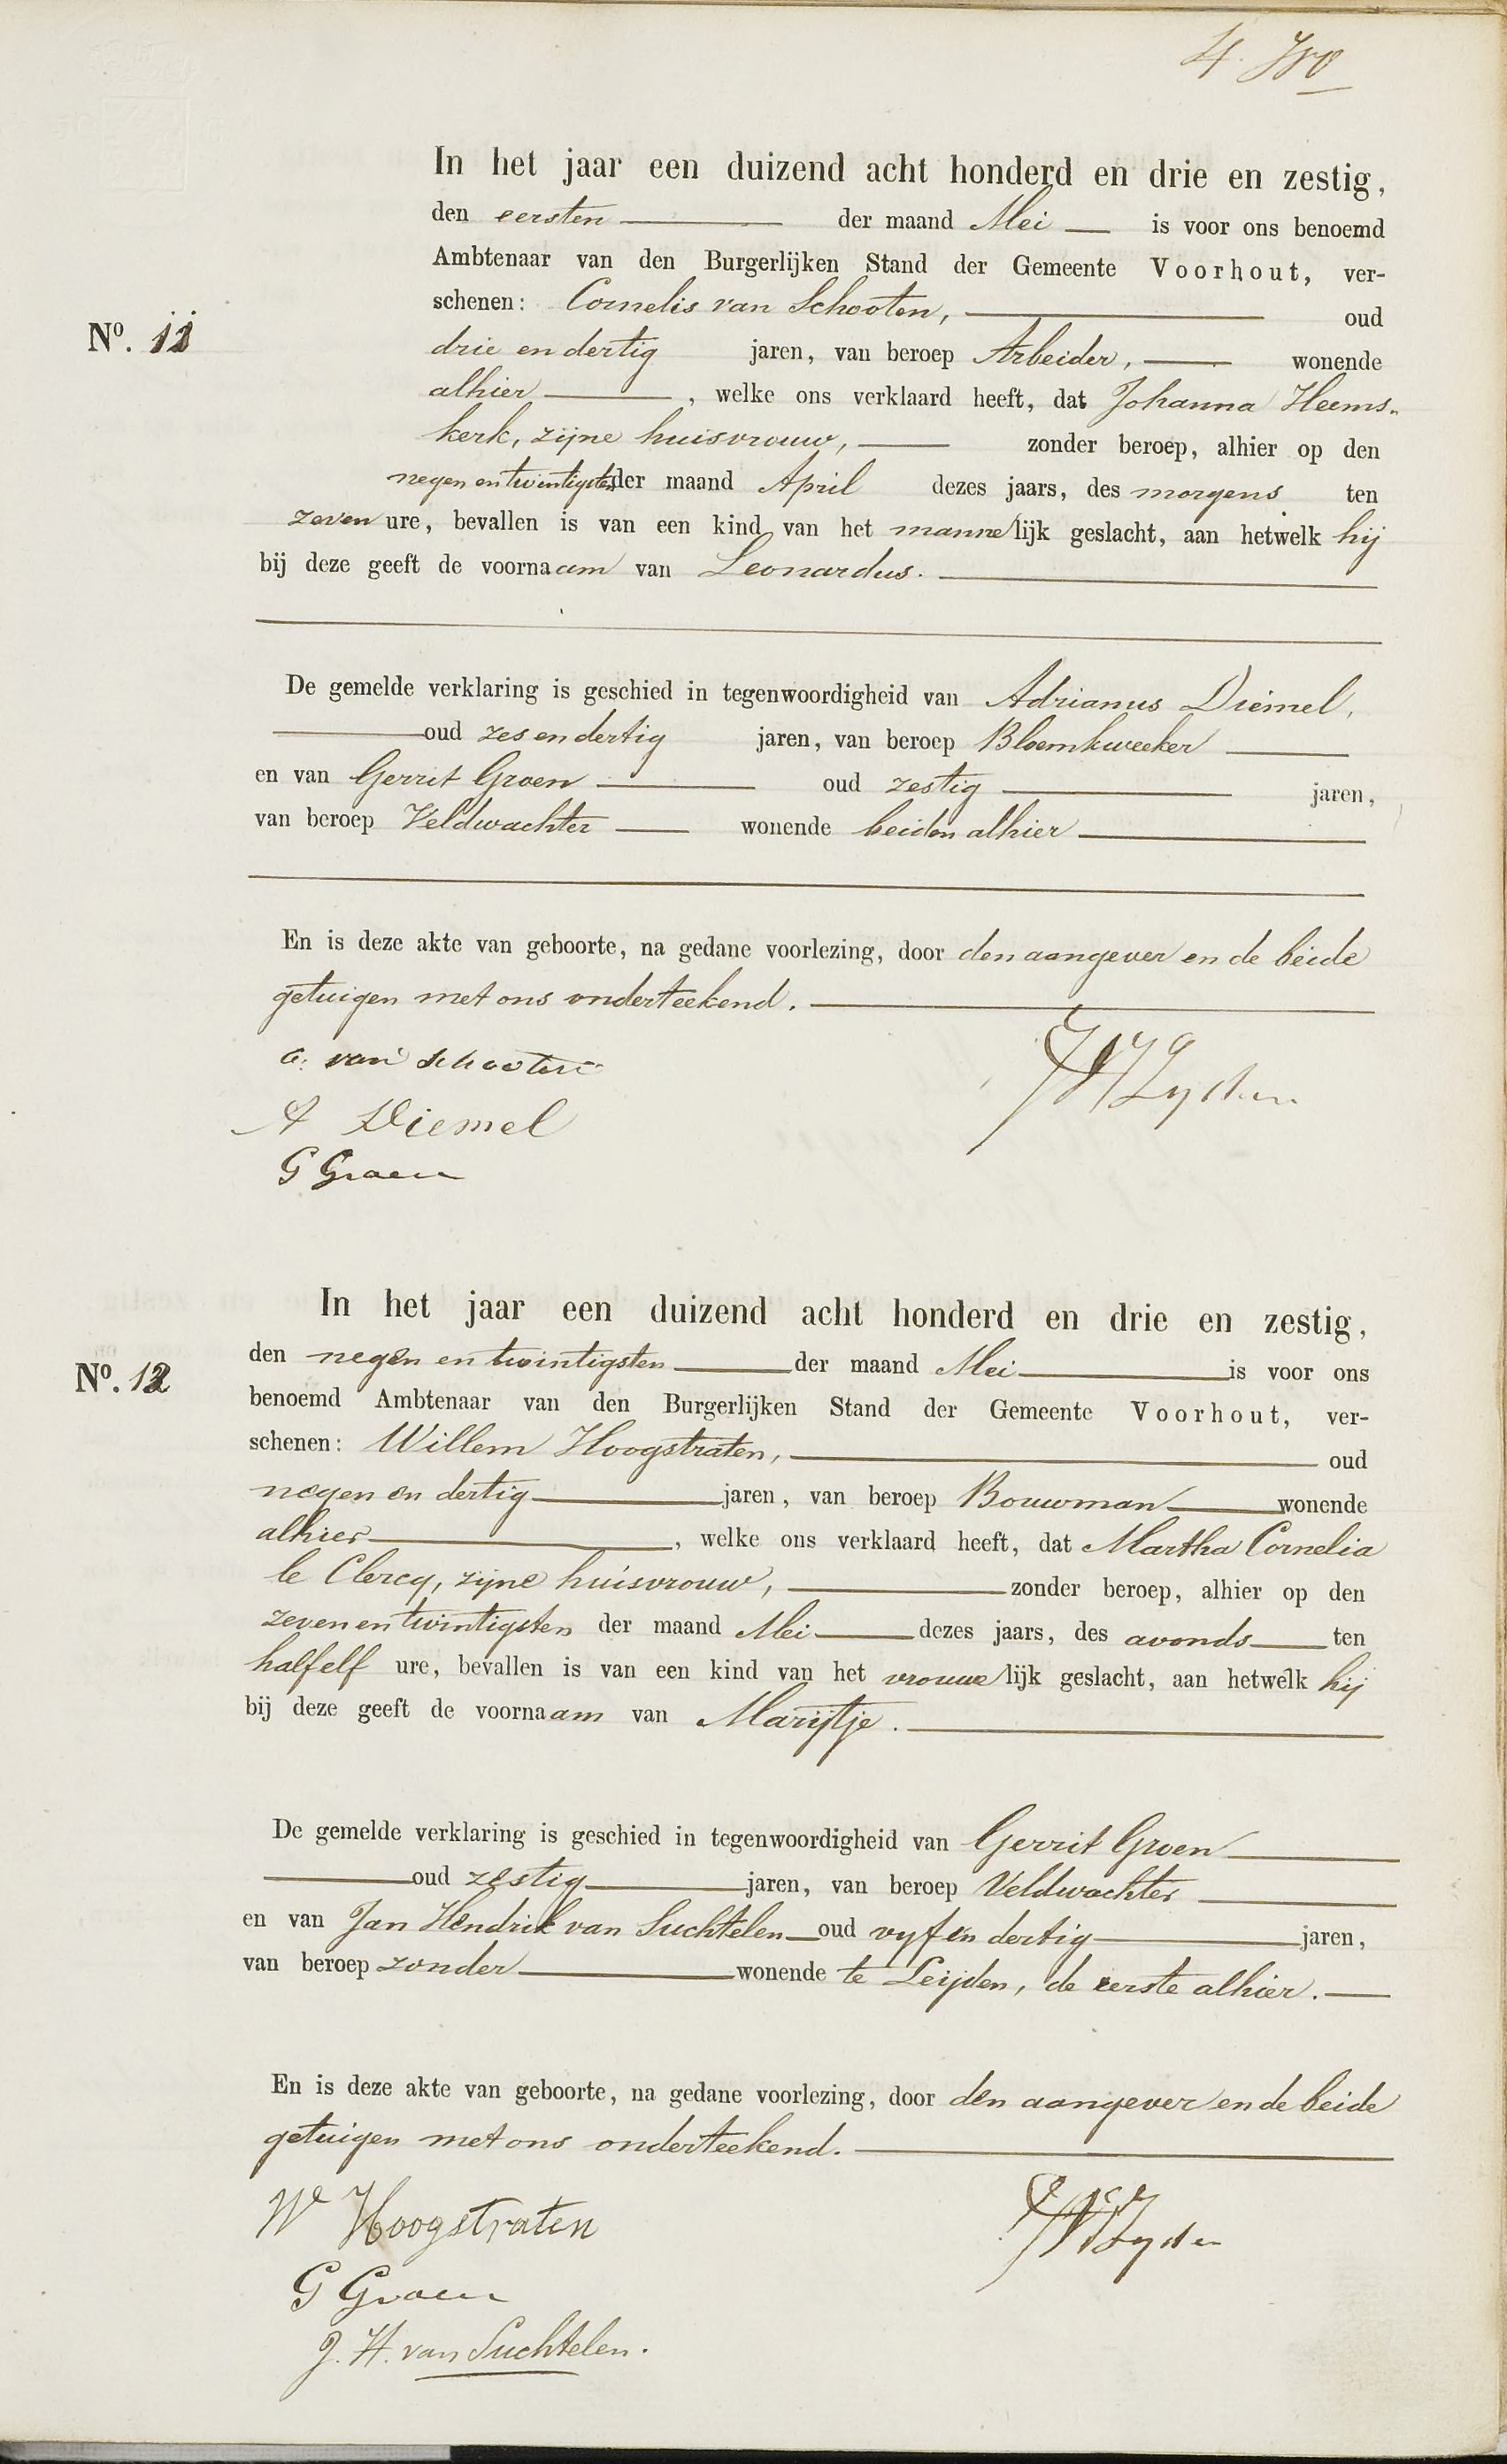 4.
In het jaar een duizend acht honderd en drie en zestig,
den eersten der maand Mei is voor ons benoemd
Ambtenaar van den Burgerlijken Stand der Gemeente Voorhout, ver-
schenen: Cornelis van Schooten, oud
No. 11
drie en dertig jaren, van beroep Arbeider, wonende
alhier , welke ons verklaard heeft, dat Johanna Heems-
kerk, zijne huisvrouw, zonder beroep, alhier op den
negen en twintigsten der maand April dezes jaars, des morgens ten
zeven ure, bevallen is van een kind van het mannelijk geslacht, aan hetwelk hij
bij deze geeft de voornaam van Leonardus.
De gemelde verklaring is geschied in tegenwoordigheid van Adrianus Diemel,
oud zes en dertig jaren, van beroep Bloemkweeker
en van Gerrit Groen oud zestig jaren,
van beroep Veldwachter wonende beiden alhier
En is deze akte van geboorte, na gedane voorlezing, door den aangever en de beide
getuigen met ons onderteekend.
C. van Schooten
A Diemel
G Groen
In het jaar een duizend acht honderd en drie en zestig,
den negen en twintigsten der maand Mei is voor ons
No. 12
benoemd Ambtenaar van den Burgerlijken Stand der Gemeente Voorhout, ver-
schenen: Willem Hoogstraten, oud
negen en dertig jaren, van beroep Bouwman wonende
alhier , welke ons verklaard heeft, dat Martha Cornelia
le Clercq, zijne huisvrouw, zonder beroep, alhier op den
zeven en twintigsten der maand Mei dezes jaars, des avonds ten
half elf ure, bevallen is van een kind van het vrouwelijk geslacht, aan hetwelk hij
bij deze geeft de voornaam van Marijtje.
De gemelde verklaring is geschied in tegenwoordigheid van Gerrit Groen
oud zestig jaren, van beroep Veldwachter
en van Jan Hendrik van Suchtelen oud vyf en dertig jaren,
van beroep zonder wonende te Leijden, de eerste alhier.
En is deze akte van geboorte, na gedane voorlezing, door den aangever en de beide
getuigen met ons onderteekend.
Wm Hoogstraten
G Groen
J. H. van Suchtelen.